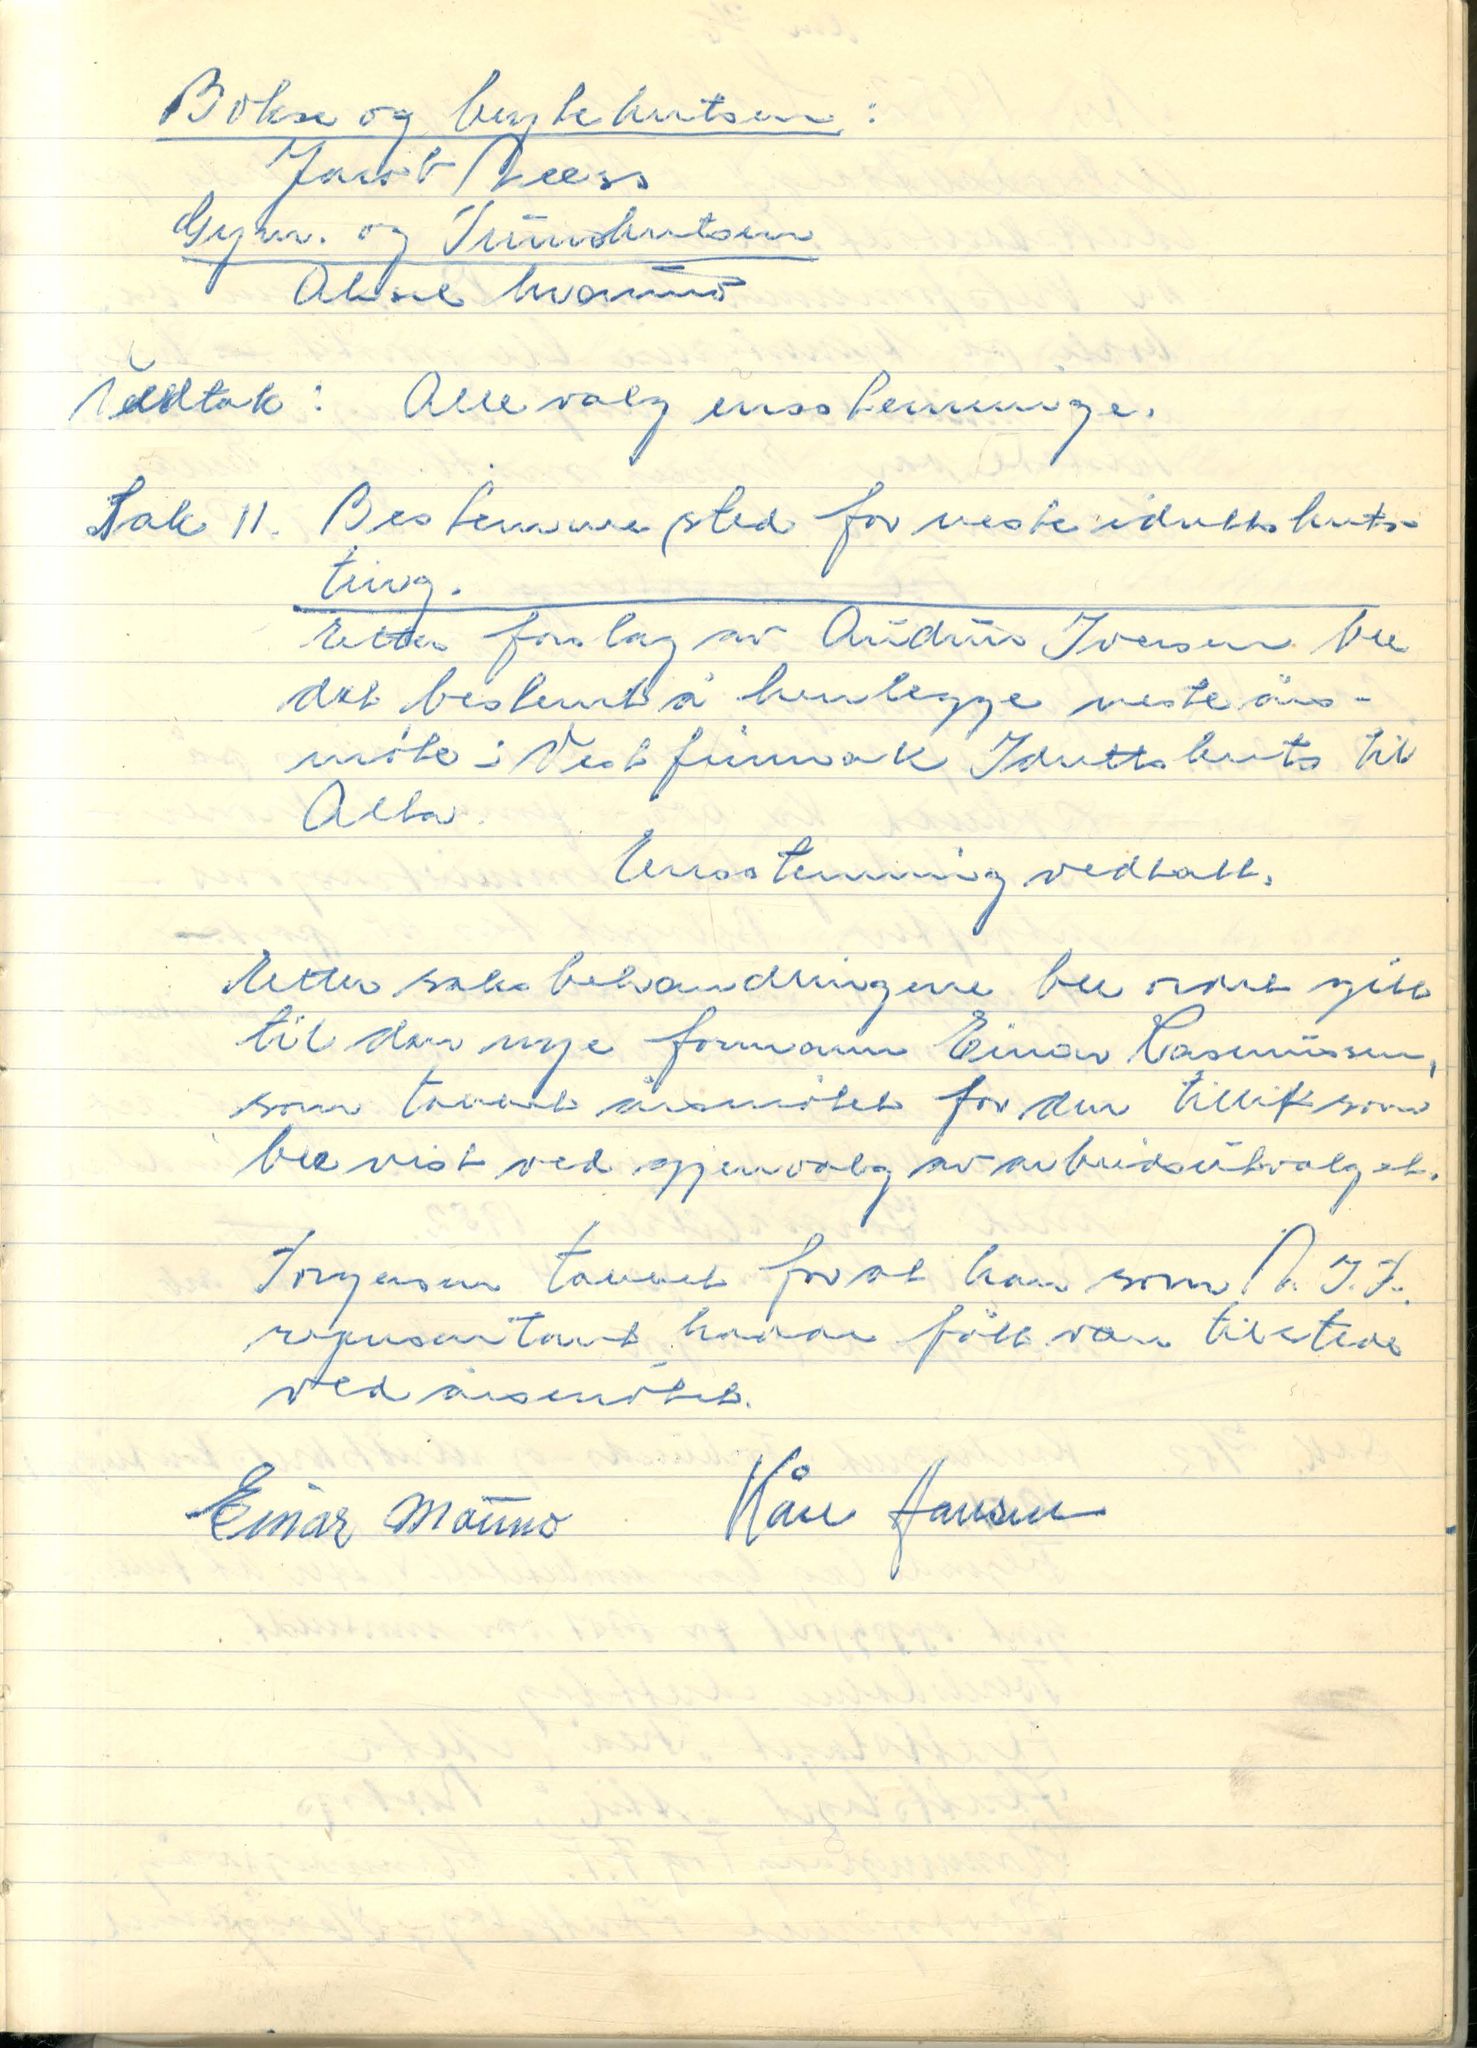 Bokse og brytekretsen:
Jacob Næss
Gym. og Turnkretsen
Aksel
Vedtak: Alle valg enstemmige.
Sak 11. Bestemme sted for neste idrettskrets-
ting.
Etter forslag av Andreas Iversen ble
det bestemt å henlegge neste års-
møte i Vestfinnmark Idrettskrets til
Alta.
Ensstemmig vedtatt.
Etter saksbehandlingene ble ordet gitt
til den nye formann Einar Rasmussen,
som takket årsmøtet for den tillit som
ble vist ved gjenvalg av arbeidsutvalget.
Torgersen takket for at han som N.I.F.
representant hadde fått være tilstede
ved årsmøtet.
Einar Mauno Kåre Hansen